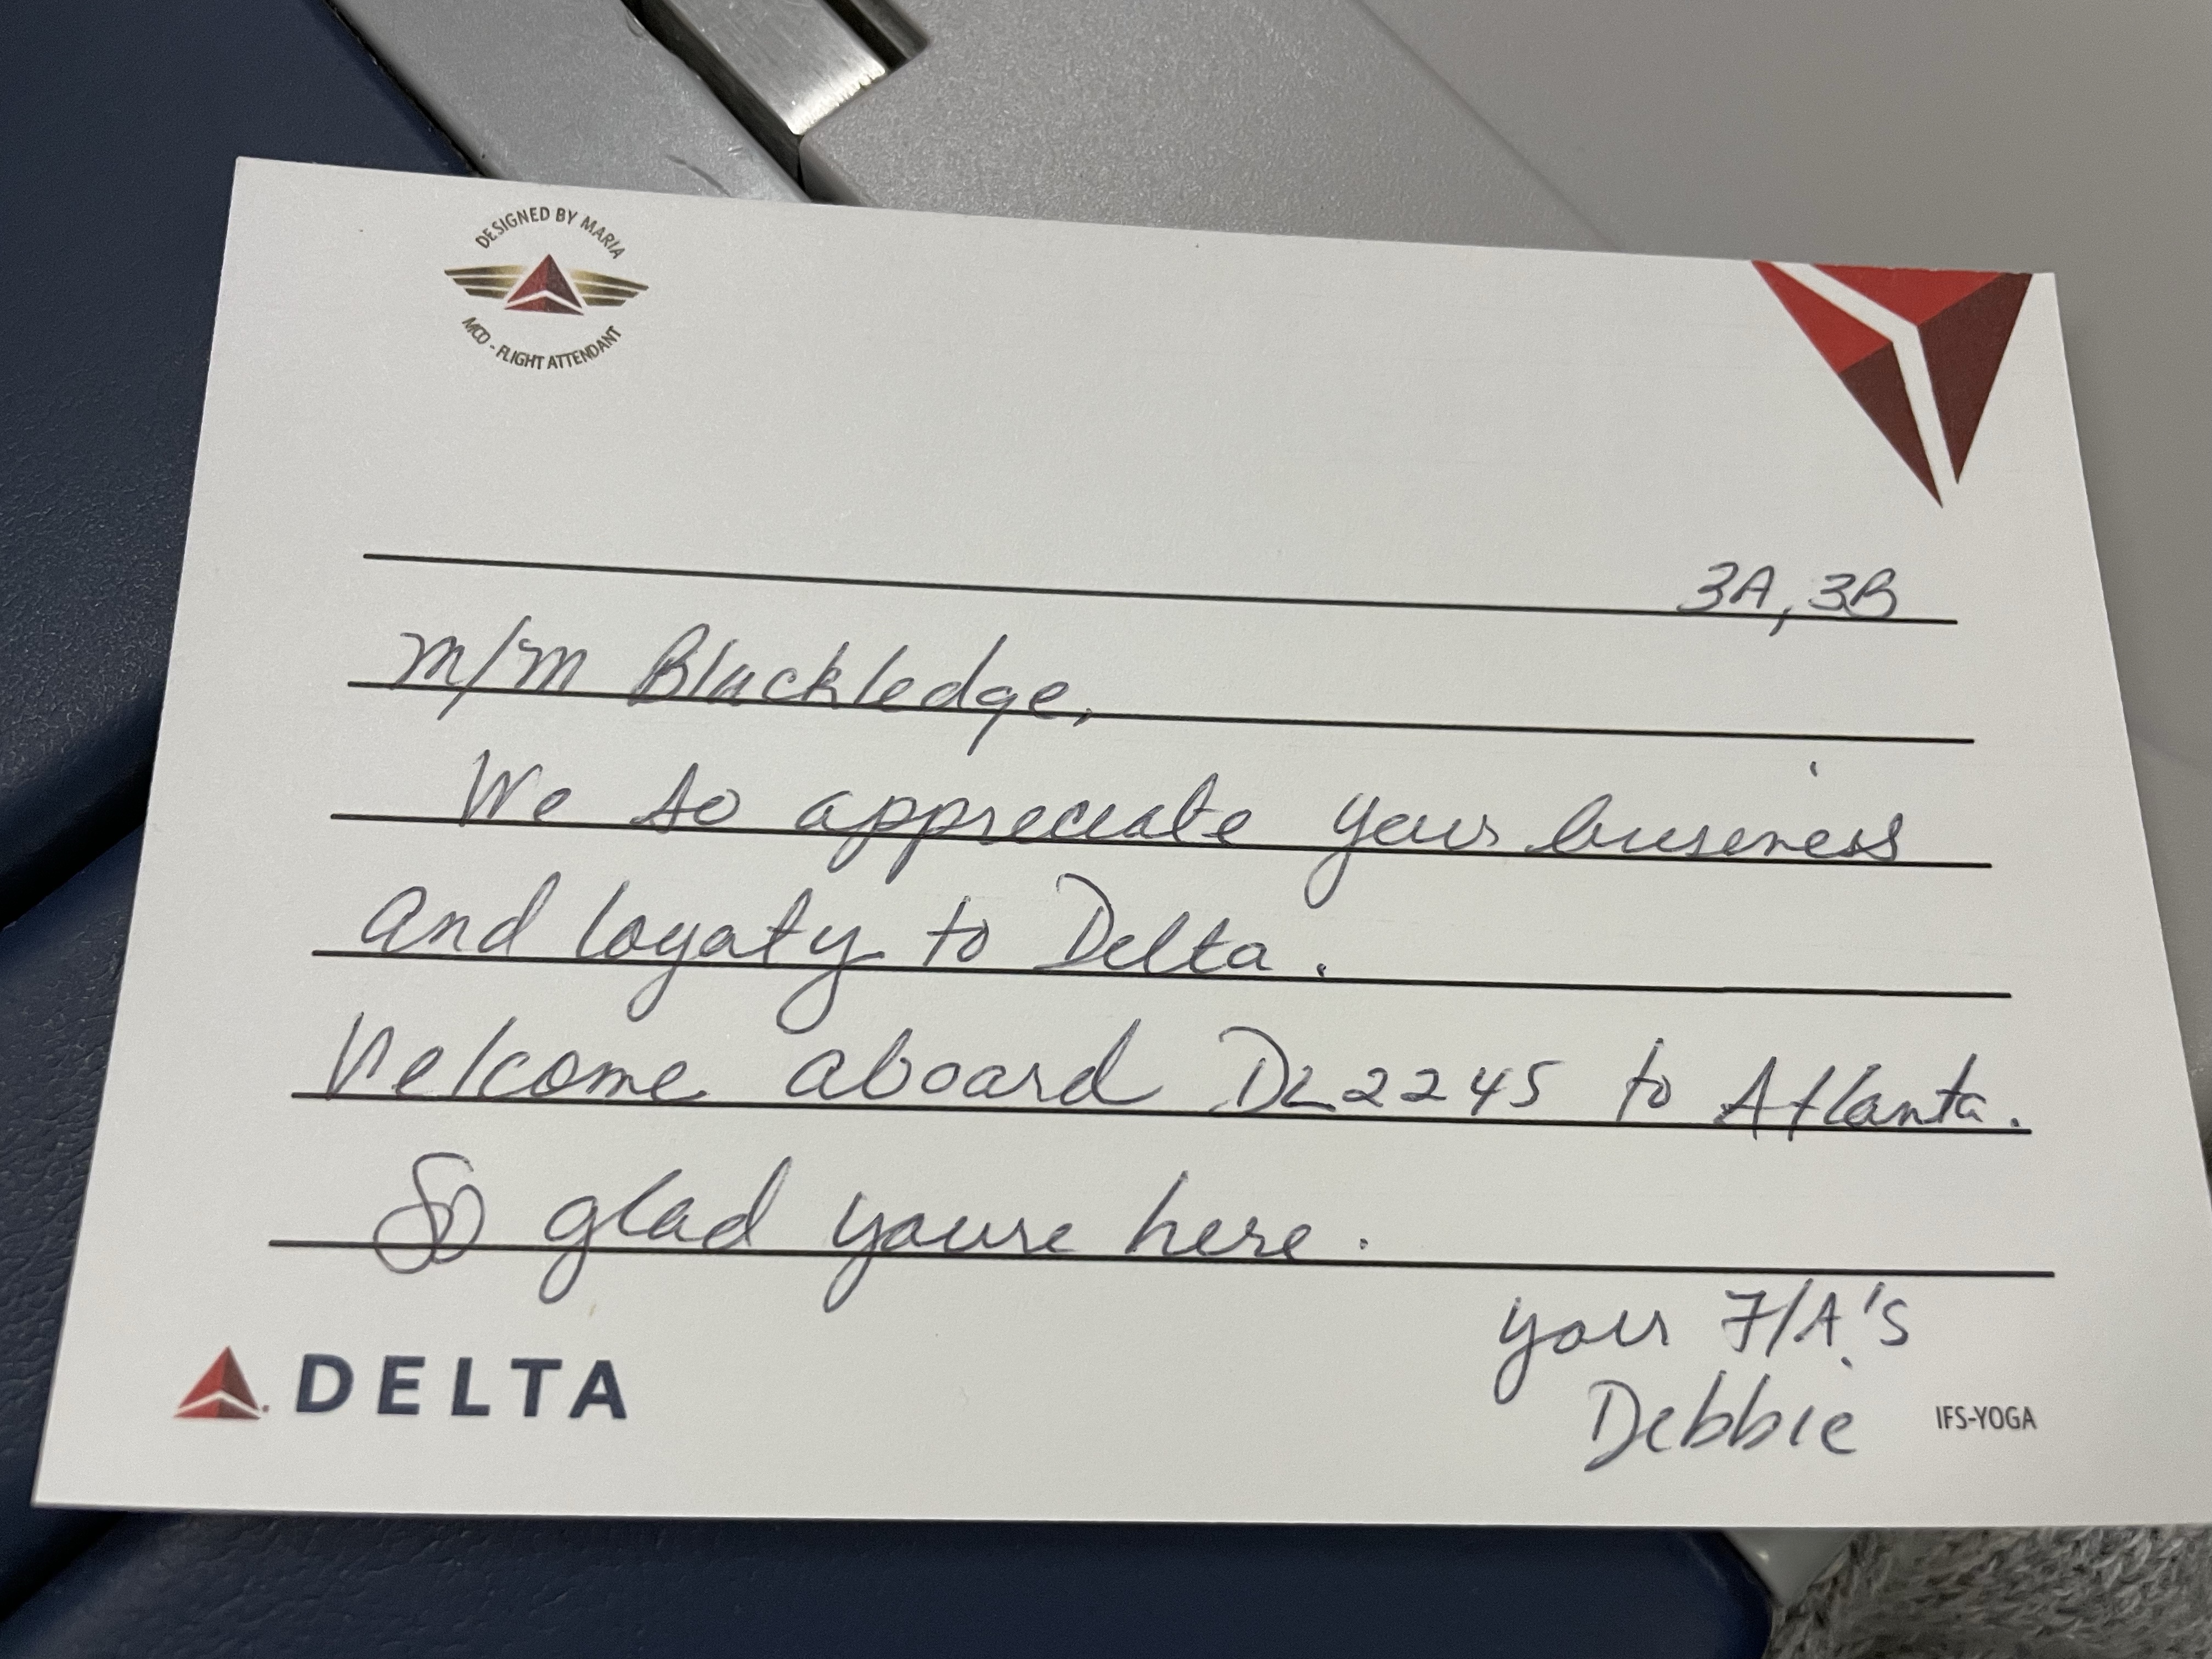 DESIGNED BY MARIA
MCO - FLIGHT ATTENDANT
3A, 3B
m/m Blackledge,
We so appreciate your business
and loyalty to Delta.
Welcome aboard DL2245 to Atlanta.
So glad youre here.
your F/A's
Debbie
DELTA
IFS-YOGA